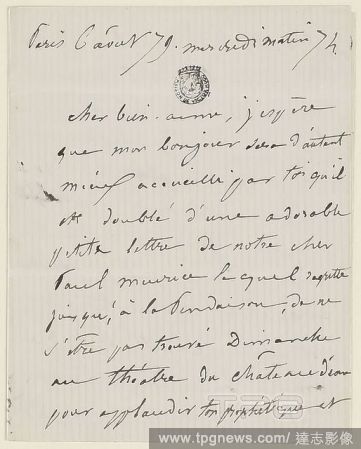 Paris 6 août 79. mercredi matin 7 h.
cher bien-aimé, j'espère
que mon bonjour sera d'autant
mieux accueilli par toi qu'il
est doublé d'une adorable
petite lettre de notre cher
Paul meurice lequel regrette
jusqu'à la Pendaison, de ne
s'être pas trouvé Dimanche
au théâtre du château d'eau
pour applaudir ton prophétique et
www.tpgnews.com/ 達志影像